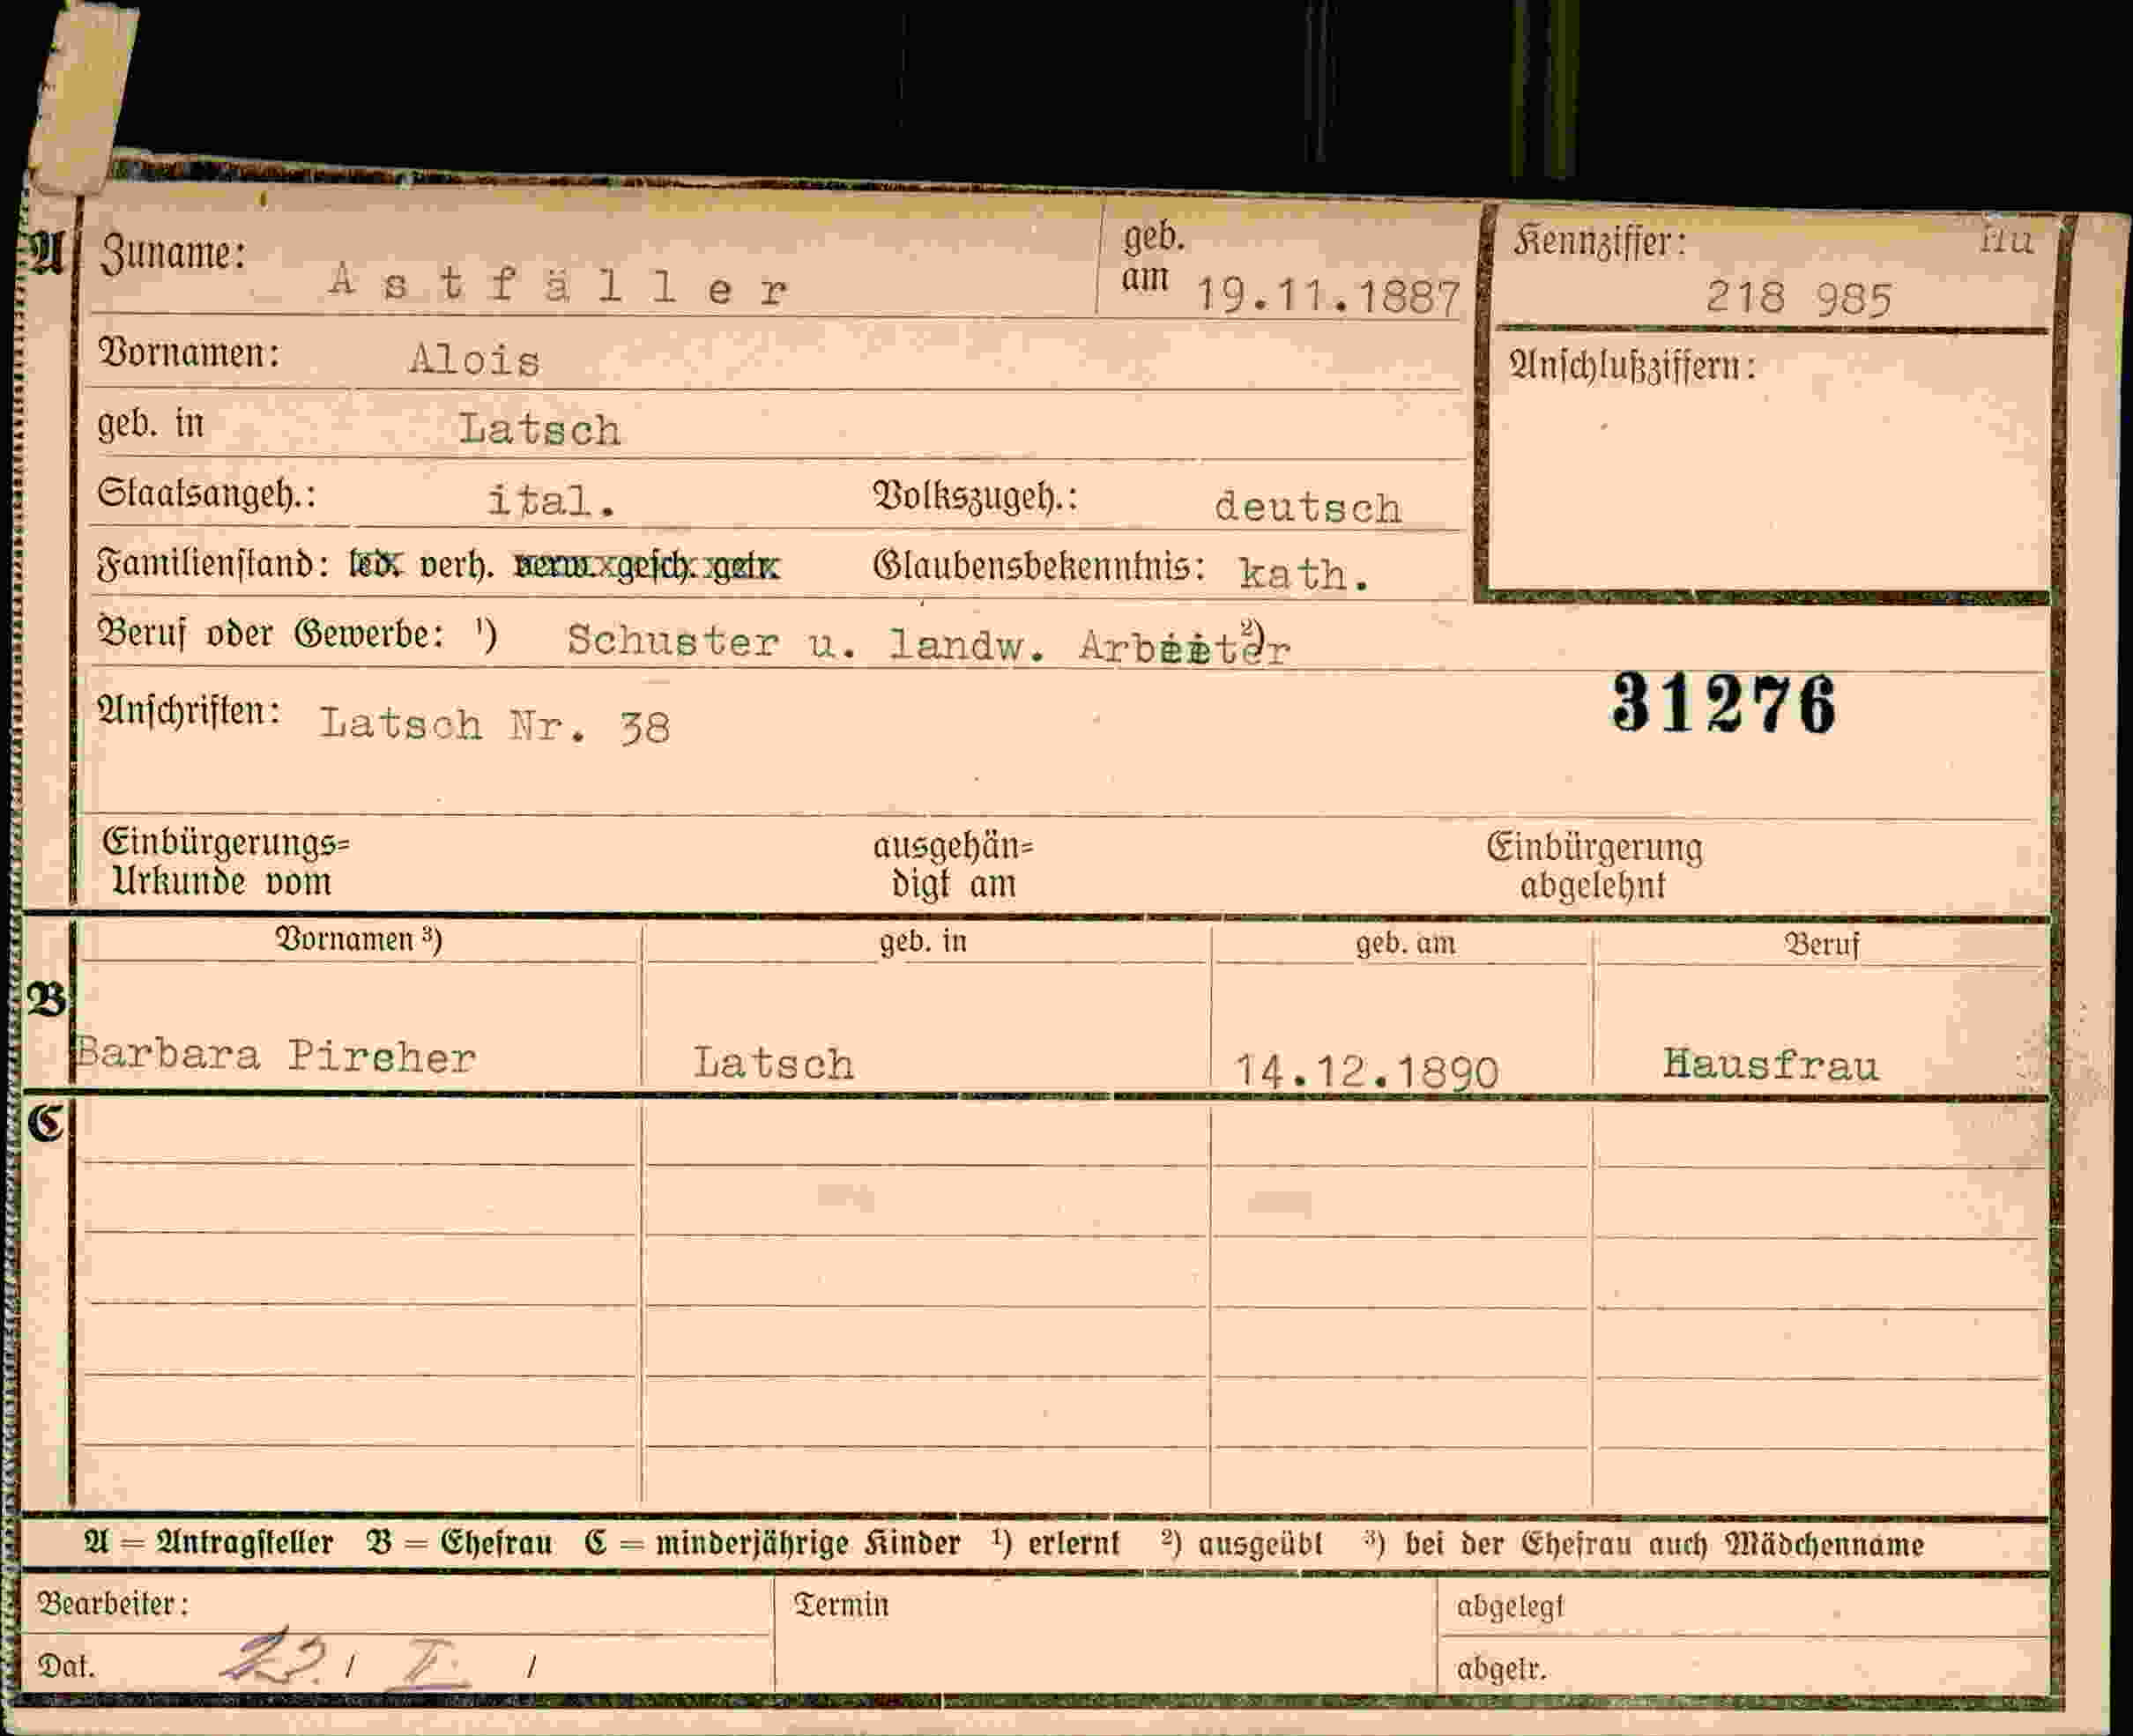 A Zuname: Astfäller geb. am 19.11.1887 Kennziffer: Hu
218 985
Vornamen: Alois Anschlußziffern:
geb. in Latsch
Staatsangeh.: ital. Volkszugeh.: deutsch
Familienstand: led. verh. verw. gesch. getr. Glaubensbekenntnis: kath.
Beruf oder Gewerbe: ¹) Schuster u. landw. Arbeiter ²)
31276
Anschriften: Latsch Nr. 38
Einbürgerungs= ausgehän= Einbürgerung
Urkunde vom digt am abgelehnt
Vornamen ³) geb. in geb. am Beruf
B
Barbara Pircher Latsch 14.12.1890 Hausfrau
C
A = Antragsteller B = Ehefrau C = minderjährige Kinder ¹) erlernt ²) ausgeübt ³) bei der Ehefrau auch Mädchenname
Bearbeiter: Termin abgelegt
Dat. 23. / I. / abgetr.